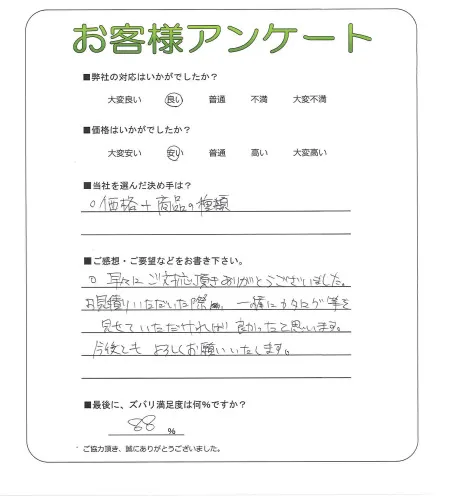 お客様アンケート
■弊社の対応はいかがでしたか？
大変良い 良い 普通 不満 大変不満
■価格はいかがでしたか？
大変安い 安い 普通 高い 大変高い
■当社を選んだ決め手は？
○価格＋商品の種類
■ご感想・ご要望などをお書き下さい。
○早々にご対応頂きありがとうございました。
お見積りいただいた際、一緒にカタログ等を
見せていただければ良かったと思います。
今後ともよろしくお願いいたします。
■最後に、ズバリ満足度は何％ですか？
88 ％
ご協力頂き、誠にありがとうございました。